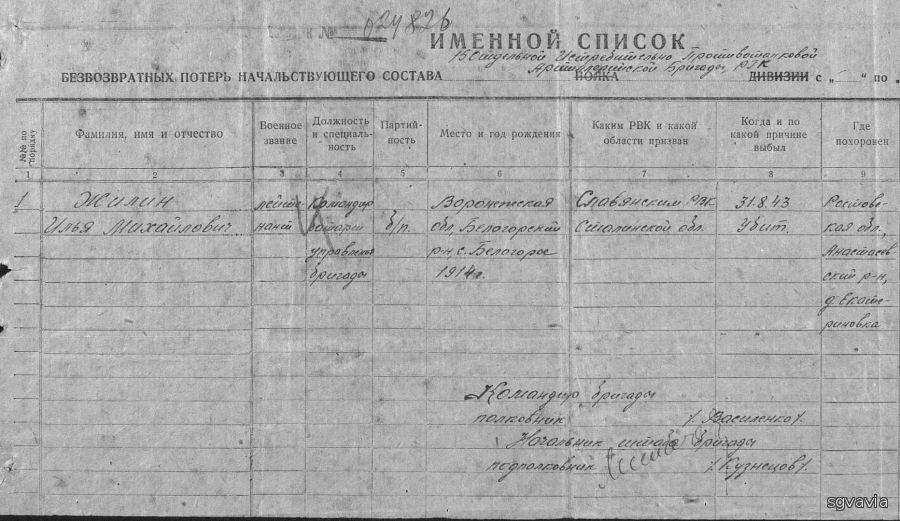 к № 024826
ИМЕННОЙ СПИСОК
15 Отдельной Истребительно Противотанковой
Артиллерийской Бригады РГК
БЕЗВОЗВРАТНЫХ ПОТЕРЬ НАЧАЛЬСТВУЮЩЕГО СОСТАВА ПОЛКА ДИВИЗИИ с „ “ по „
№№ по порядку
Фамилия, имя и отчество
Военное звание
Должность и специальность
Партийность
Место и год рождения
Каким РВК и какой области призван
Когда и по какой причине выбыл
Где похоронен
1 2 3 4 5 6 7 8 9
1 Жилин лейте- Командир Воронежская Славянским РВК 31.8.43 Ростов-
Илья Михайлович нант батареи б/п. обл, Белогорский Сталинской обл. Убит. ская обл.,
управления р-н, с. Белогорье Анастасьев-
бригады 1914 г. ский р-н,
д. Екате-
риновка
Командир бригады
полковник /Василенко/.
Начальник штаба бригады
подполковник /Кузнецов/.
sgvavia